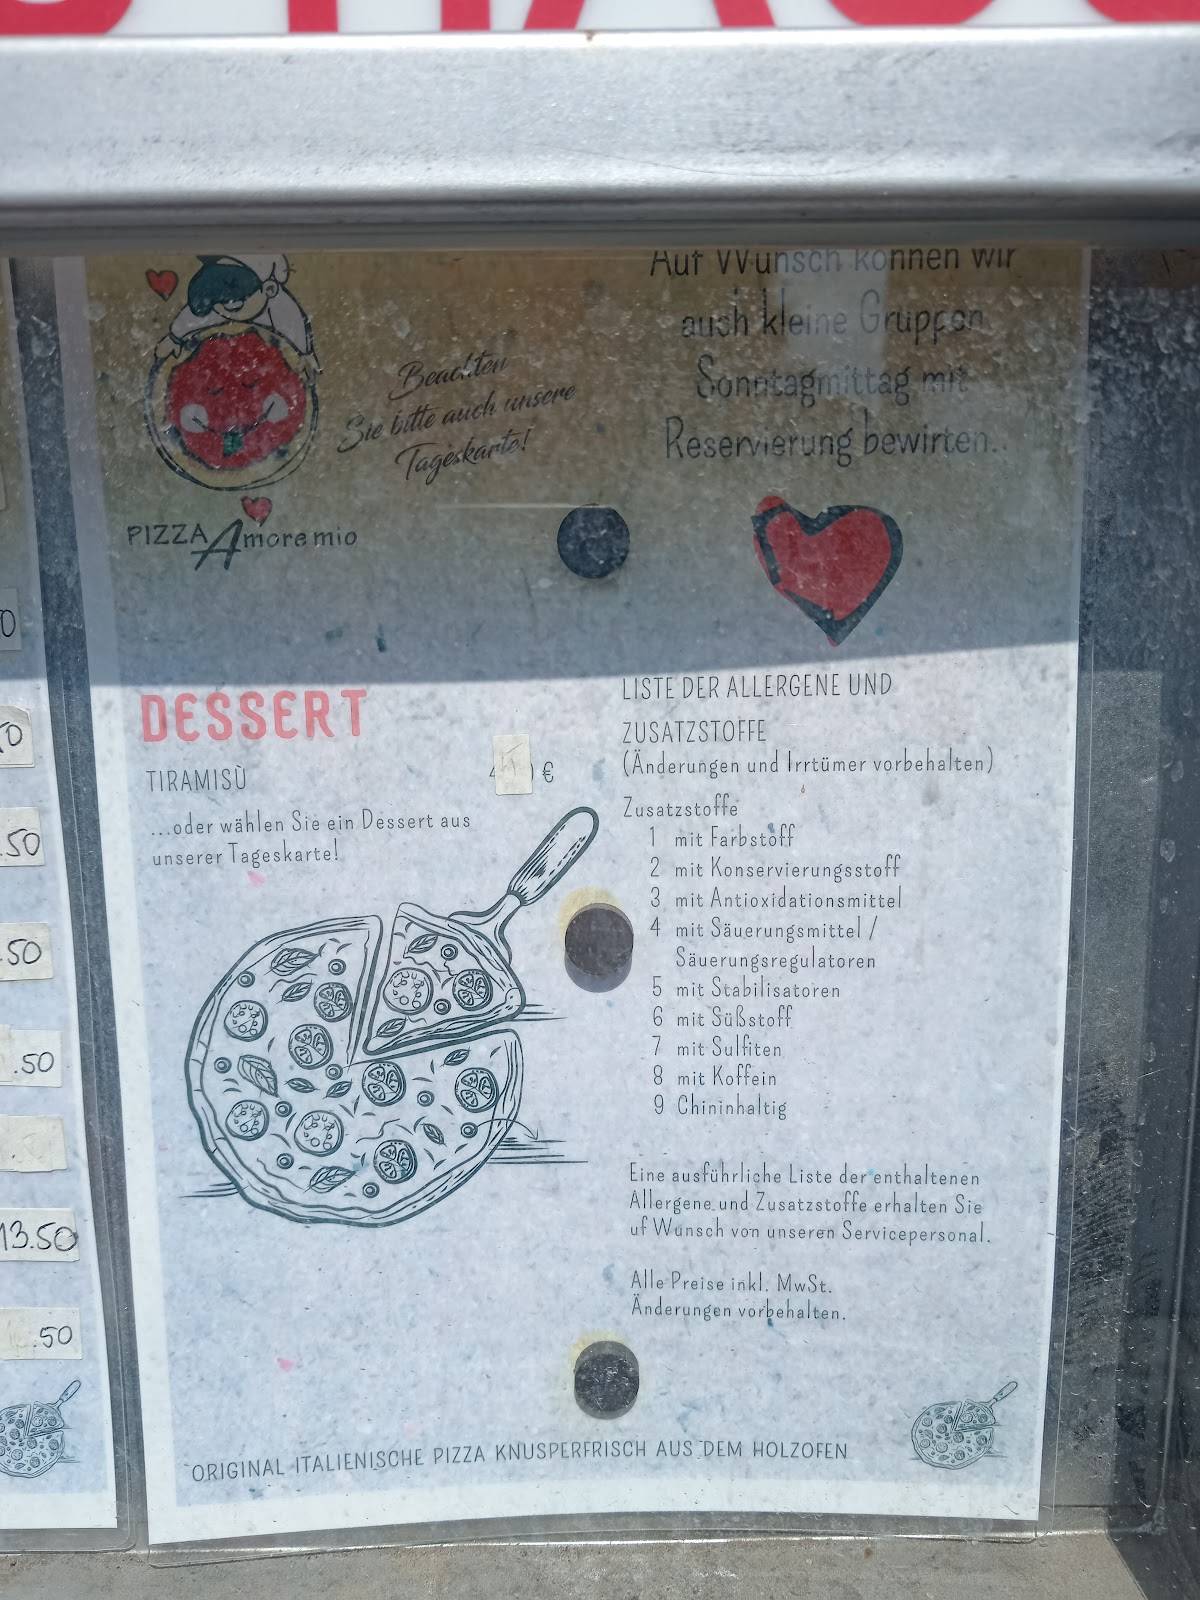 Auf Wunsch können wir
auch kleine Gruppen
Sonntagmittag mit
Reservierung bewirten..
Beachten
Sie bitte auch unsere
Tageskarte!
PIZZA Amore mio
DESSERT
TIRAMISÙ €
...oder wählen Sie ein Dessert aus
unserer Tageskarte!
LISTE DER ALLERGENE UND
ZUSATZSTOFFE
(Änderungen und Irrtümer vorbehalten)
Zusatzstoffe
1 mit Farbstoff
2 mit Konservierungsstoff
3 mit Antioxidationsmittel
4 mit Säuerungsmittel /
Säuerungsregulatoren
5 mit Stabilisatoren
6 mit Süßstoff
7 mit Sulfiten
8 mit Koffein
9 Chininhaltig
Eine ausführliche Liste der enthaltenen
Allergene und Zusatzstoffe erhalten Sie
uf Wunsch von unseren Servicepersonal.
Alle Preise inkl. MwSt.
Änderungen vorbehalten.
ORIGINAL ITALIENISCHE PIZZA KNUSPERFRISCH AUS DEM HOLZOFEN
.50
.50
.50
13.50
.50